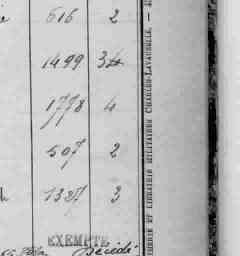 616 2
1499 34
1778 4
507 2
1327 3
EXEMPTE
Décédé
IMPRIMERIE ET LIBRAIRIE MILITAIRES CHARLES-LAVAUZELLE. —